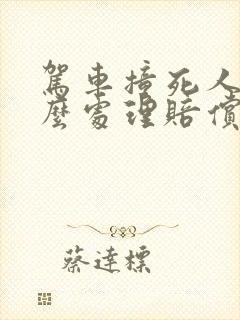 駕車撞死人
麼處理賠償
蔡達標